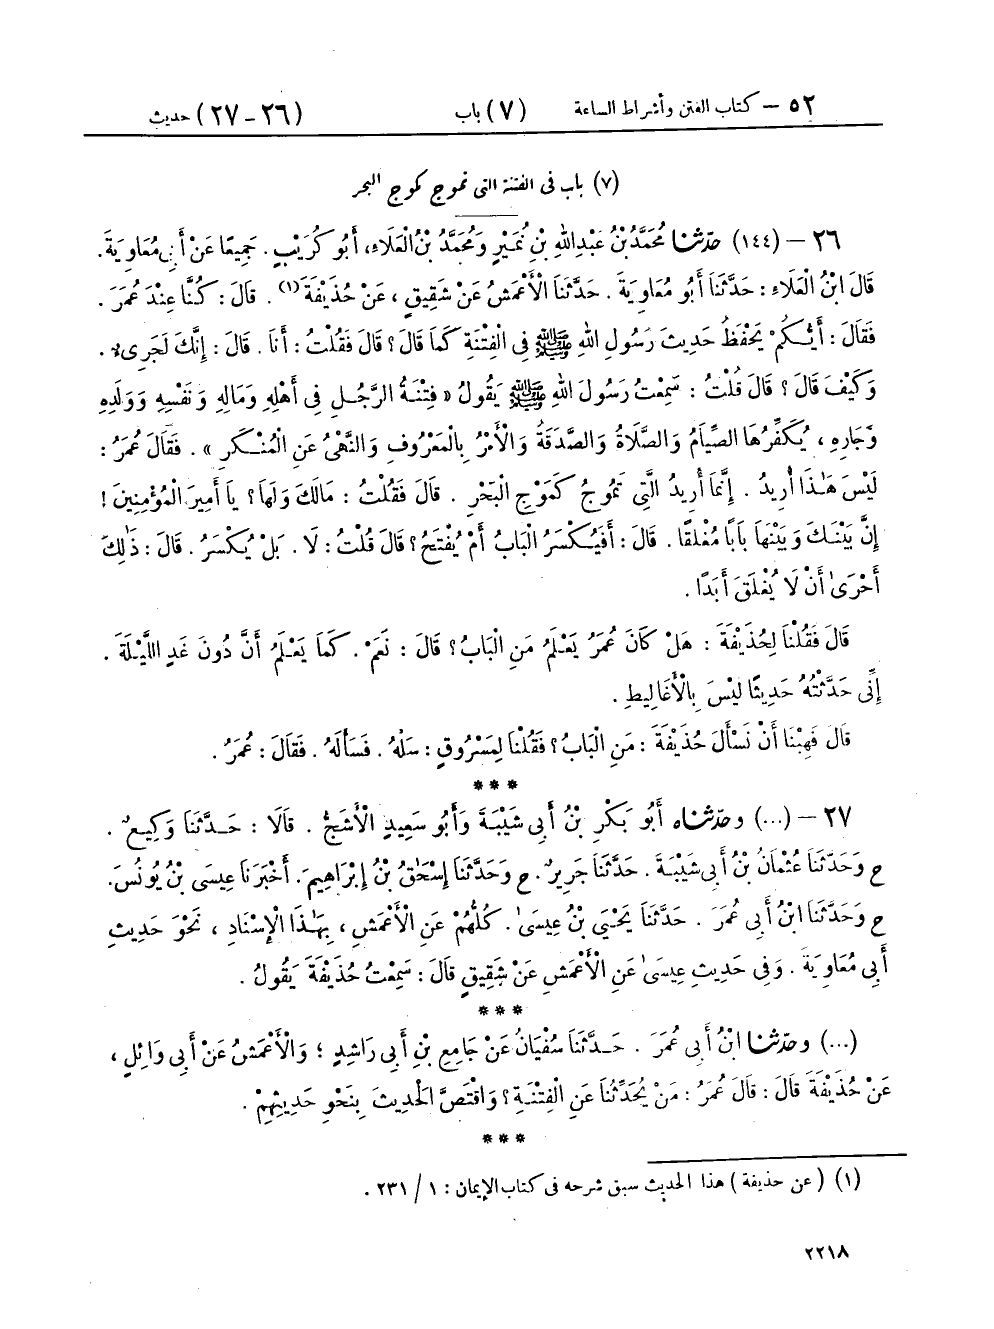 ٥٢ – كتاب الفتن وأشراط الساعة (٧) باب (٢٦ – ٢٧) حديث
(٧) باب فى الفتنة التى تموج كموج البحر
٢٦ – (١٤٤) حدّثنا مُحَمَّدُ بْنُ عَبْدِ اللهِ بْنِ نُمَيْرٍ وَمُحَمَّدُ بْنُ الْعَلَاءِ، أَبُو كُرَيْبٍ . جَمِيعًا عَنْ أَبِى مُعَاوِيَةَ.
قَالَ ابْنُ الْعَلَاءِ : حَدَّثَنَا أَبُو مُعَاوِيَةَ . حَدَّثَنَا الْأَعْمَشُ عَنْ شَقِيقٍ ، عَنْ حُذَيْفَةَ (١) . قَالَ : كُنَّا عِنْدَ عُمَرَ .
فَقَالَ : أَيُّكُمْ يَحْفَظُ حَدِيثَ رَسُولِ اللهِ ﷺ فِى الْفِتْنَةِ كَمَا قَالَ ؟ قَالَ فَقُلْتُ : أَنَا . قَالَ : إِنَّكَ لَجَرِىءٌ .
وَكَيْفَ قَالَ ؟ قَالَ قُلْتُ : سَمِعْتُ رَسُولَ اللهِ ﷺ يَقُولُ « فِتْنَةُ الرَّجُلِ فِى أَهْلِهِ وَمَالِهِ وَنَفْسِهِ وَوَلَدِهِ
وَجَارِهِ ، يُكَفِّرُهَا الصِّيَامُ وَالصَّلَاةُ وَالصَّدَقَةُ وَالْأَمْرُ بِالْمَعْرُوفِ وَالنَّهْىُ عَنِ الْمُنْكَرِ » . فَقَالَ عُمَرُ :
لَيْسَ هَٰذَا أُرِيدُ . إِنَّمَا أُرِيدُ الَّتِى تَمُوجُ كَمَوْجِ الْبَحْرِ . قَالَ فَقُلْتُ : مَالَكَ وَلَهَا ؟ يَا أَمِيرَ الْمُؤْمِنِينَ !
إِنَّ بَيْنَكَ وَبَيْنَهَا بَابًا مُغْلَقًا . قَالَ : أَفَيُكْسَرُ الْبَابُ أَمْ يُفْتَحُ ؟ قَالَ قُلْتُ : لَا . بَلْ يُكْسَرُ . قَالَ : ذَٰلِكَ
أَحْرَىٰ أَنْ لَا يُغْلَقَ أَبَدًا .
قَالَ فَقُلْنَا لِحُذَيْفَةَ : هَلْ كَانَ عُمَرُ يَعْلَمُ مَنِ الْبَابُ ؟ قَالَ : نَعَمْ . كَمَا يَعْلَمُ أَنَّ دُونَ غَدٍ اللَّيْلَةَ .
إِنِّى حَدَّثْتُهُ حَدِيثًا لَيْسَ بِالْأَغَالِيطِ .
قَالَ فَهِبْنَا أَنْ نَسْأَلَ حُذَيْفَةَ : مَنِ الْبَابُ ؟ فَقُلْنَا لِمَسْرُوقٍ : سَلْهُ . فَسَأَلَهُ . فَقَالَ : عُمَرُ .
***
٢٧ – (...) وحدّثناه أَبُو بَكْرِ بْنُ أَبِى شَيْبَةَ وَأَبُو سَعِيدٍ الْأَشَجُّ . قَالَا : حَدَّثَنَا وَكِيعٌ .
ح وَحَدَّثَنَا عُثْمَانُ بْنُ أَبِى شَيْبَةَ . حَدَّثَنَا جَرِيرٌ . ح وَحَدَّثَنَا إِسْحَٰقُ بْنُ إِبْرَاهِيمَ . أَخْبَرَنَا عِيسَى بْنُ يُونُسَ.
ح وَحَدَّثَنَا ابْنُ أَبِى عُمَرَ . حَدَّثَنَا يَحْيَىٰ بْنُ عِيسَىٰ . كُلُّهُمْ عَنِ الْأَعْمَشِ ، بِهَٰذَا الْإِسْنَادِ ، نَحْوَ حَدِيثِ
أَبِى مُعَاوِيَةَ . وَفِى حَدِيثِ عِيسَىٰ عَنِ الْأَعْمَشِ عَنْ شَقِيقٍ قَالَ : سَمِعْتُ حُذَيْفَةَ يَقُولُ .
***
(...) وحدّثنا ابْنُ أَبِى عُمَرَ . حَدَّثَنَا سُفْيَانُ عَنْ جَامِعِ بْنِ أَبِى رَاشِدٍ ؛ وَالْأَعْمَشُ عَنْ أَبِى وَائِلٍ ،
عَنْ حُذَيْفَةَ قَالَ : قَالَ عُمَرُ : مَنْ يُحَدِّثُنَا عَنِ الْفِتْنَةِ ؟ وَاقْتَصَّ الْحَدِيثَ بِنَحْوِ حَدِيثِهِمْ .
***
(١) (عن حذيفة) هذا الحديث سبق شرحه فى كتاب الإيمان : ١ / ٢٣١ .
٢٢١٨